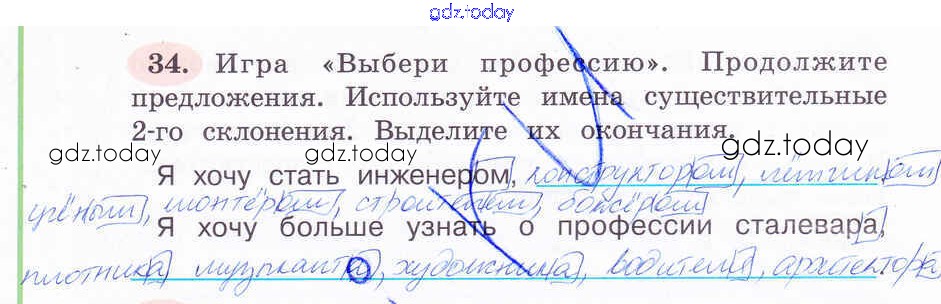 gdz.today
34. Игра «Выбери профессию». Продолжите
предложения. Используйте имена существительные
2-го склонения. Выделите их окончания.
gdz.today gdz.today gdz.today
Я хочу стать инженером, конструктором, лётчиком
учёным, монтёром, строителем, боксёром
Я хочу больше узнать о профессии сталевара,
плотника, музыканта, художника, водителя, архитектора